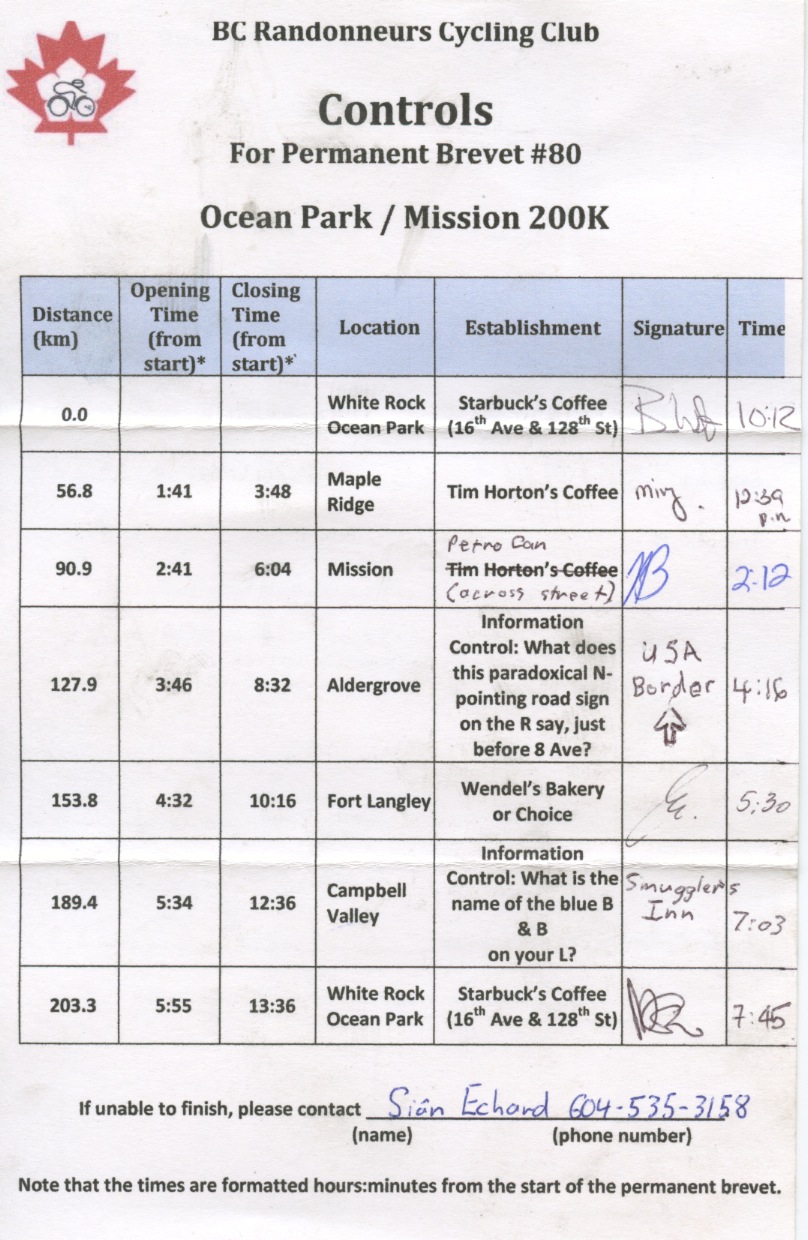 BC Randonneurs Cycling Club
Controls
For Permanent Brevet #80
Ocean Park / Mission 200K
Distance (km) Opening Time (from start)* Closing Time (from start)* Location Establishment Signature Time
0.0 White Rock Ocean Park Starbuck's Coffee (16th Ave & 128th St) 10:12
56.8 1:41 3:48 Maple Ridge Tim Horton's Coffee 12:39 p.m
90.9 2:41 6:04 Mission Petro Can Tim Horton's Coffee (across street) 2:12
127.9 3:46 8:32 Aldergrove Information Control: What does this paradoxical N-pointing road sign on the R say, just before 8 Ave? USA Border 4:16
153.8 4:32 10:16 Fort Langley Wendel's Bakery or Choice 5:30
189.4 5:34 12:36 Campbell Valley Information Control: What is the name of the blue B & B on your L? Smuggler's Inn 7:03
203.3 5:55 13:36 White Rock Ocean Park Starbuck's Coffee (16th Ave & 128th St) 7:45
If unable to finish, please contact Siân Echard 604-535-3158
(name) (phone number)
Note that the times are formatted hours:minutes from the start of the permanent brevet.